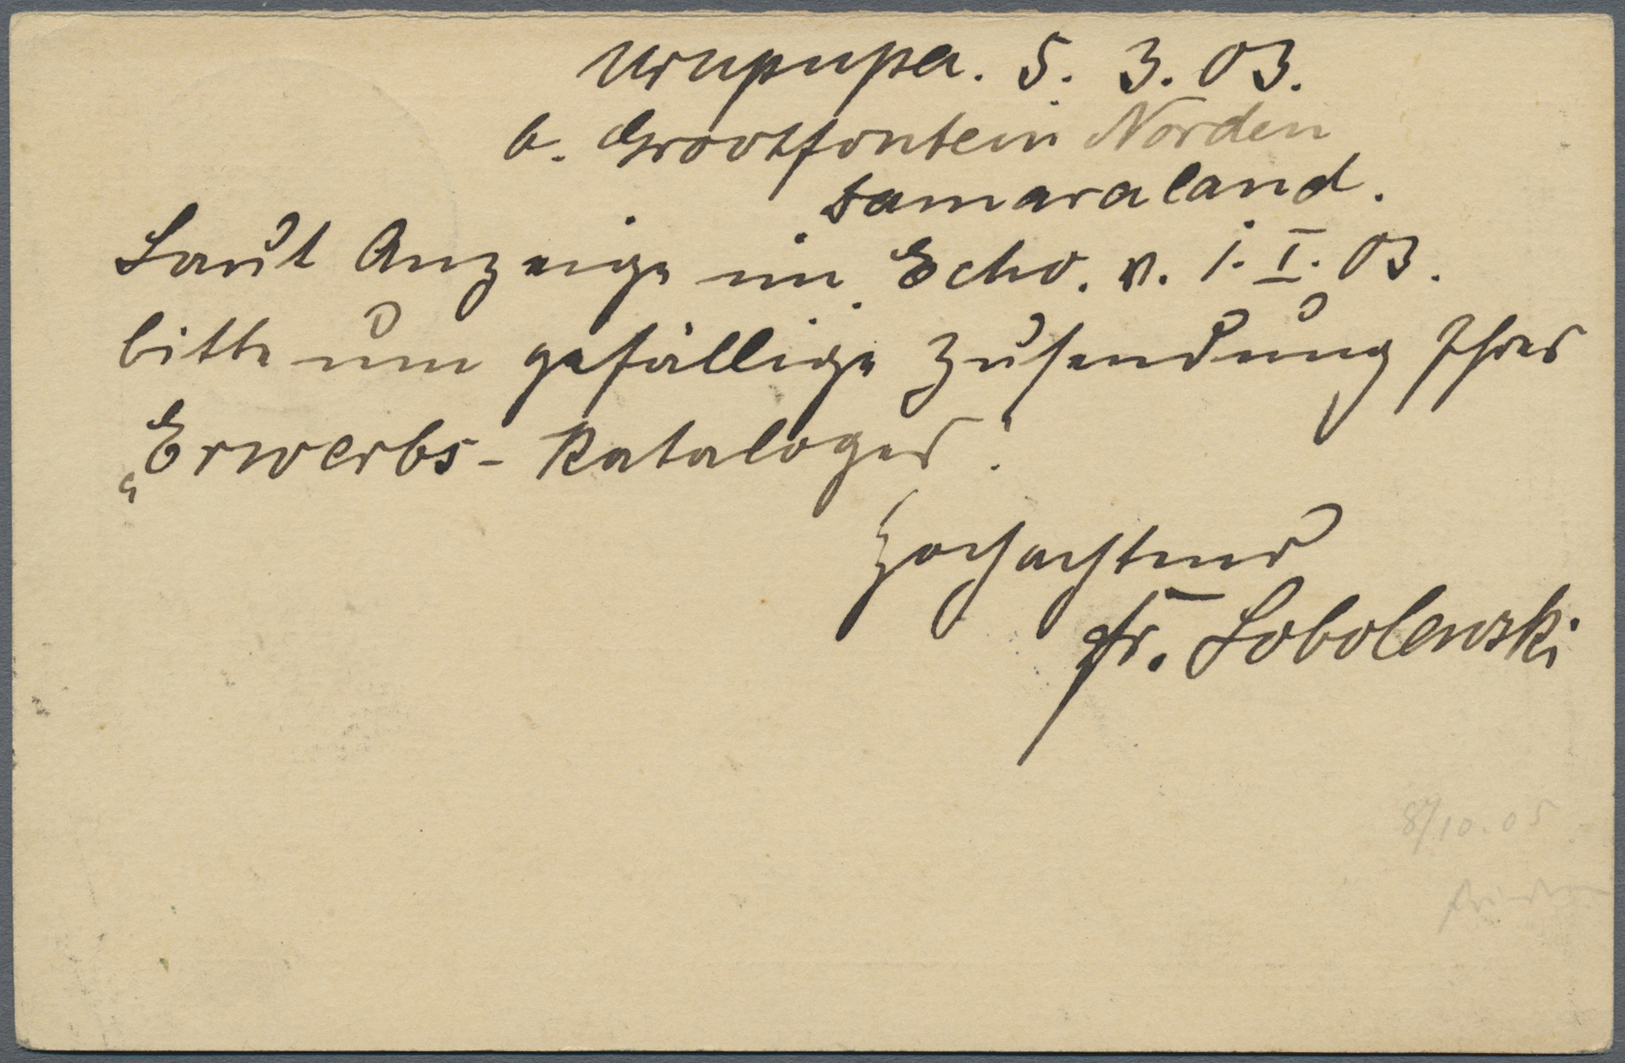 Urupupa. 5. 3. 03.
b. Grootfontein Norden
Damaraland.
Laut Anzeige im Echo. v. 1. I. 03.
bitte um gefällige Zusendung Ihres
„Erwerbs-Kataloges".
Hochachtend
Fr. Sobolewski
8/10.05